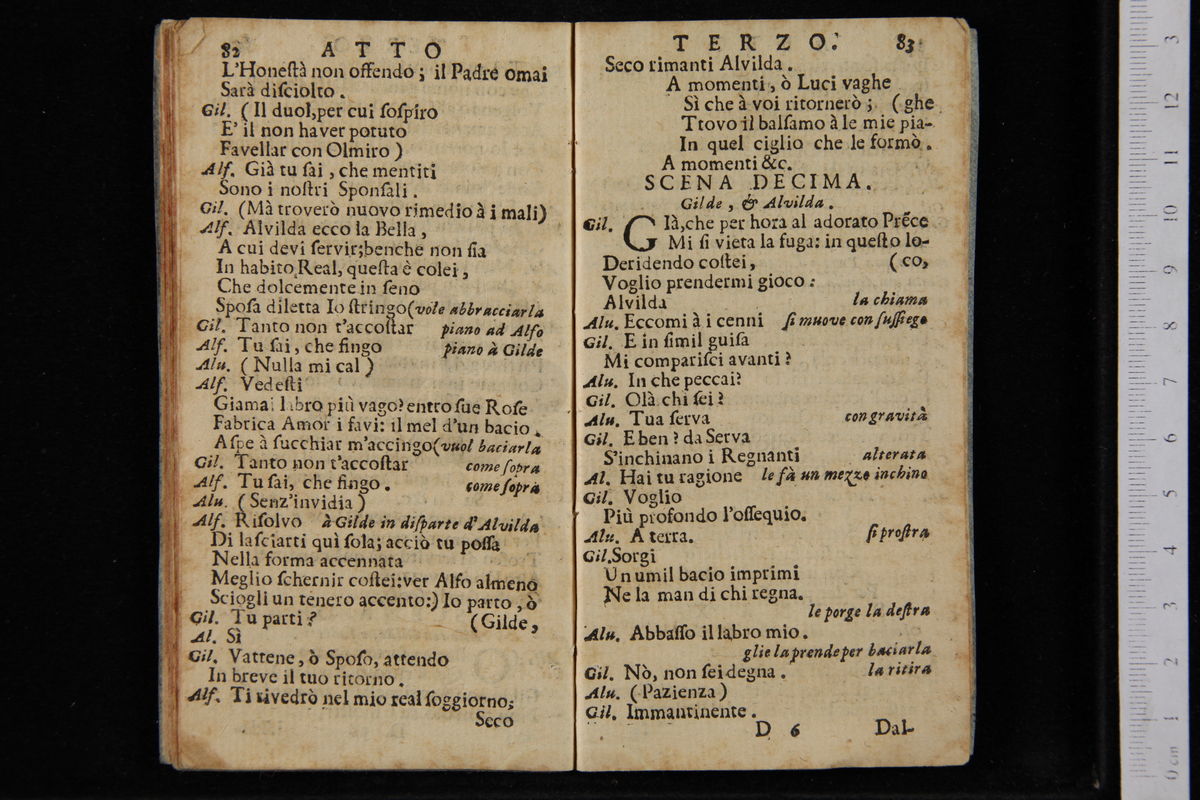 82 ATTO
L'Honeſtà non offendo; il Padre omai
Sarà diſciolto.
Gil. (Il duol,per cui ſoſpiro
E' il non haver potuto
Favellar con Olmiro)
Alf. Già tu ſai, che mentiti
Sono i noſtri Sponſali.
Gil. (Mà troverò nuovo rimedio à i mali)
Alf. Alvilda ecco la Bella,
A cui devi ſervir;benche non ſia
In habito Real, queſta è colei,
Che dolcemente in ſeno
Spoſa diletta Io ſtringo(vole abbracciarla
Gil. Tanto non t'accoſtar piano ad Alfo
Alf. Tu ſai, che fingo piano à Gilde
Alu. (Nulla mi cal)
Alf. Vedeſti
Giamai labro più vago? entro ſue Roſe
Fabrica Amor i favi: il mel d'un bacio.
Aſpe à ſucchiar m'accingo(vuol baciarla
Gil. Tanto non t'accoſtar come ſopra
Alf. Tu ſai, che fingo. come ſopra
Alu. (Senz'invidia)
Alf. Riſolvo à Gilde in diſparte d'Alvilda
Di laſciarti quì ſola; acciò tu poſſa
Nella forma accennata
Meglio ſchernir coſtei:ver Alfo almeno
Sciogli un tenero accento:) Io parto, ò
Gil. Tu parti? (Gilde,
Al. Sì
Gil. Vattene, ò Spoſo, attendo
In breve il tuo ritorno.
Alf. Ti rivedrò nel mio real ſoggiorno;
Seco
TERZO. 83
Seco rimanti Alvilda.
A momenti, ò Luci vaghe
Sì che à voi ritornerò; (ghe
Ttovo il balſamo à le mie pia-
In quel ciglio che le formò.
A momenti &c.
SCENA DECIMA.
Gilde, & Alvilda.
Gil. Già,che per hora al adorato Prẽce
Mi ſi vieta la fuga: in queſto lo-
Deridendo coſtei, (co,
Voglio prendermi gioco:
Alvilda la chiama
Alu. Eccomi à i cenni ſi muove con ſuſſiego
Gil. E in ſimil guiſa
Mi compariſci avanti?
Alu. In che peccai?
Gil. Olà chi ſei?
Alu. Tua ſerva con gravità
Gil. E ben? da Serva
S'inchinano i Regnanti alterata
Al. Hai tu ragione le fà un mezzo inchino
Gil. Voglio
Più profondo l'oſſequio.
Alu. A terra. ſi proſtra
Gil.Sorgi
Un umil bacio imprimi
Ne la man di chi regna.
le porge la deſtra
Alu. Abbaſſo il labro mio.
glie la prende per baciarla
Gil. Nò, non ſei degna. la ritira
Alu. (Pazienza)
Gil. Immantinente.
D 6 Dal-
3
12
11
10
9
8
7
6
5
4
3
2
1
0 cm